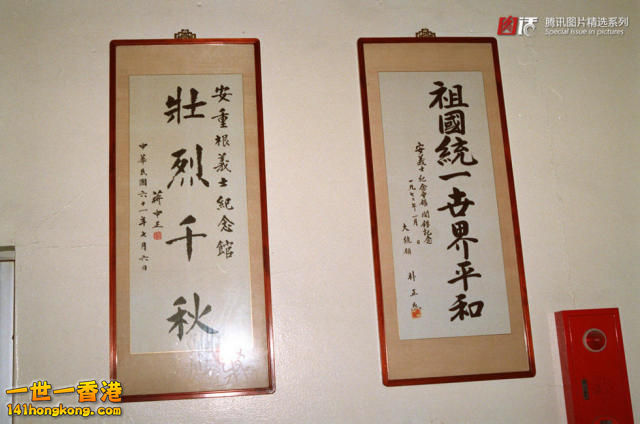 腾讯图片精选系列
Special issue in pictures
安重根義士紀念館
壯烈千秋
蔣中正
中華民國六十一年七月六日
祖國統一世界平和
安義士紀念會館開館記念
大統領
朴正
一世一香港
141hongkong.com